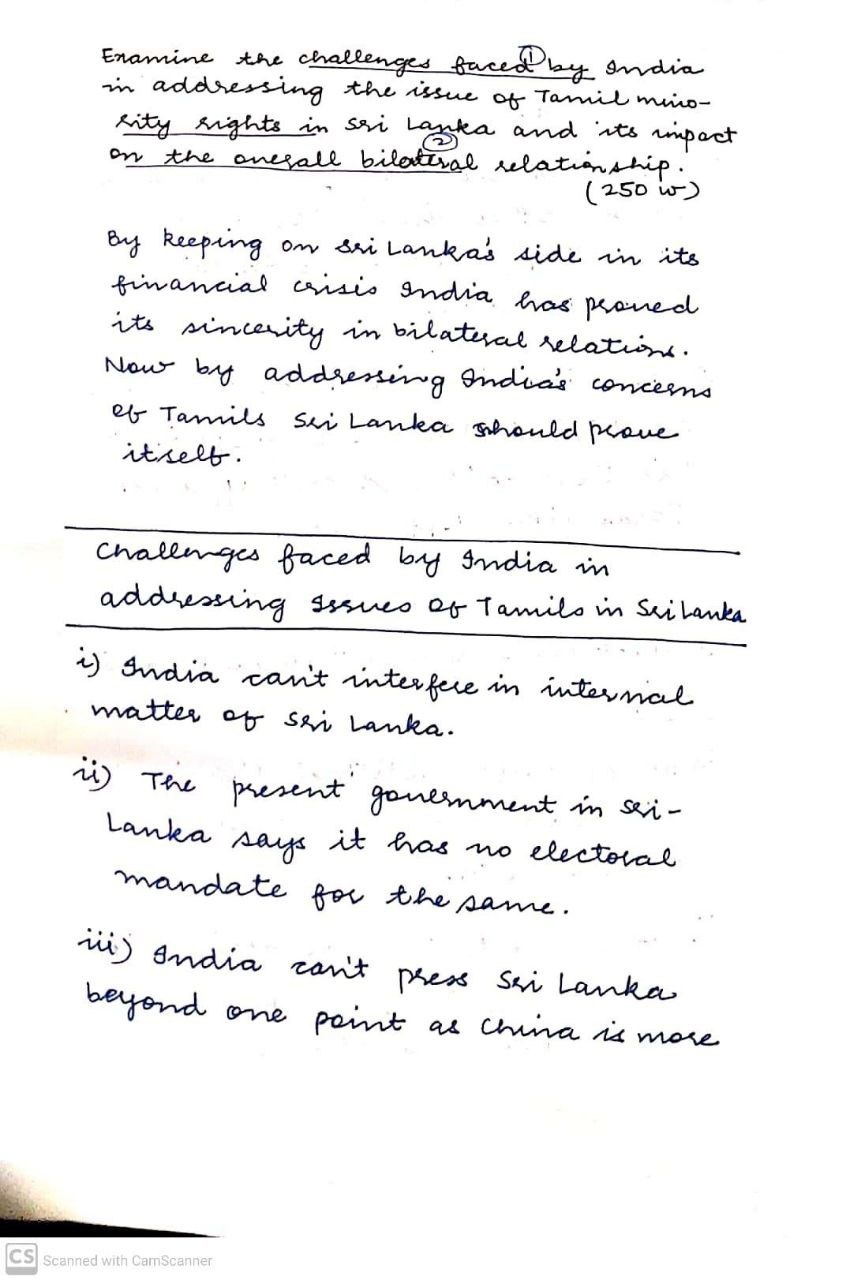 Examine the challenges faced ① by India
in addressing the issue of Tamil mino-
rity rights in Sri Lanka and its impact
②
on the overall bilateral relationship.
(250 w)
By keeping on Sri Lanka's side in its
financial crisis India has proved
its sincerity in bilateral relations.
Now by addressing India's concerns
of Tamils Sri Lanka should prove
itself.
Challenges faced by India in
addressing Issues of Tamils in Sri Lanka
i) India can't interfere in internal
matter of Sri Lanka.
ii) The present government in Sri-
Lanka says it has no electoral
mandate for the same.
iii) India can't press Sri Lanka
beyond one point as China is more
CS Scanned with CamScanner